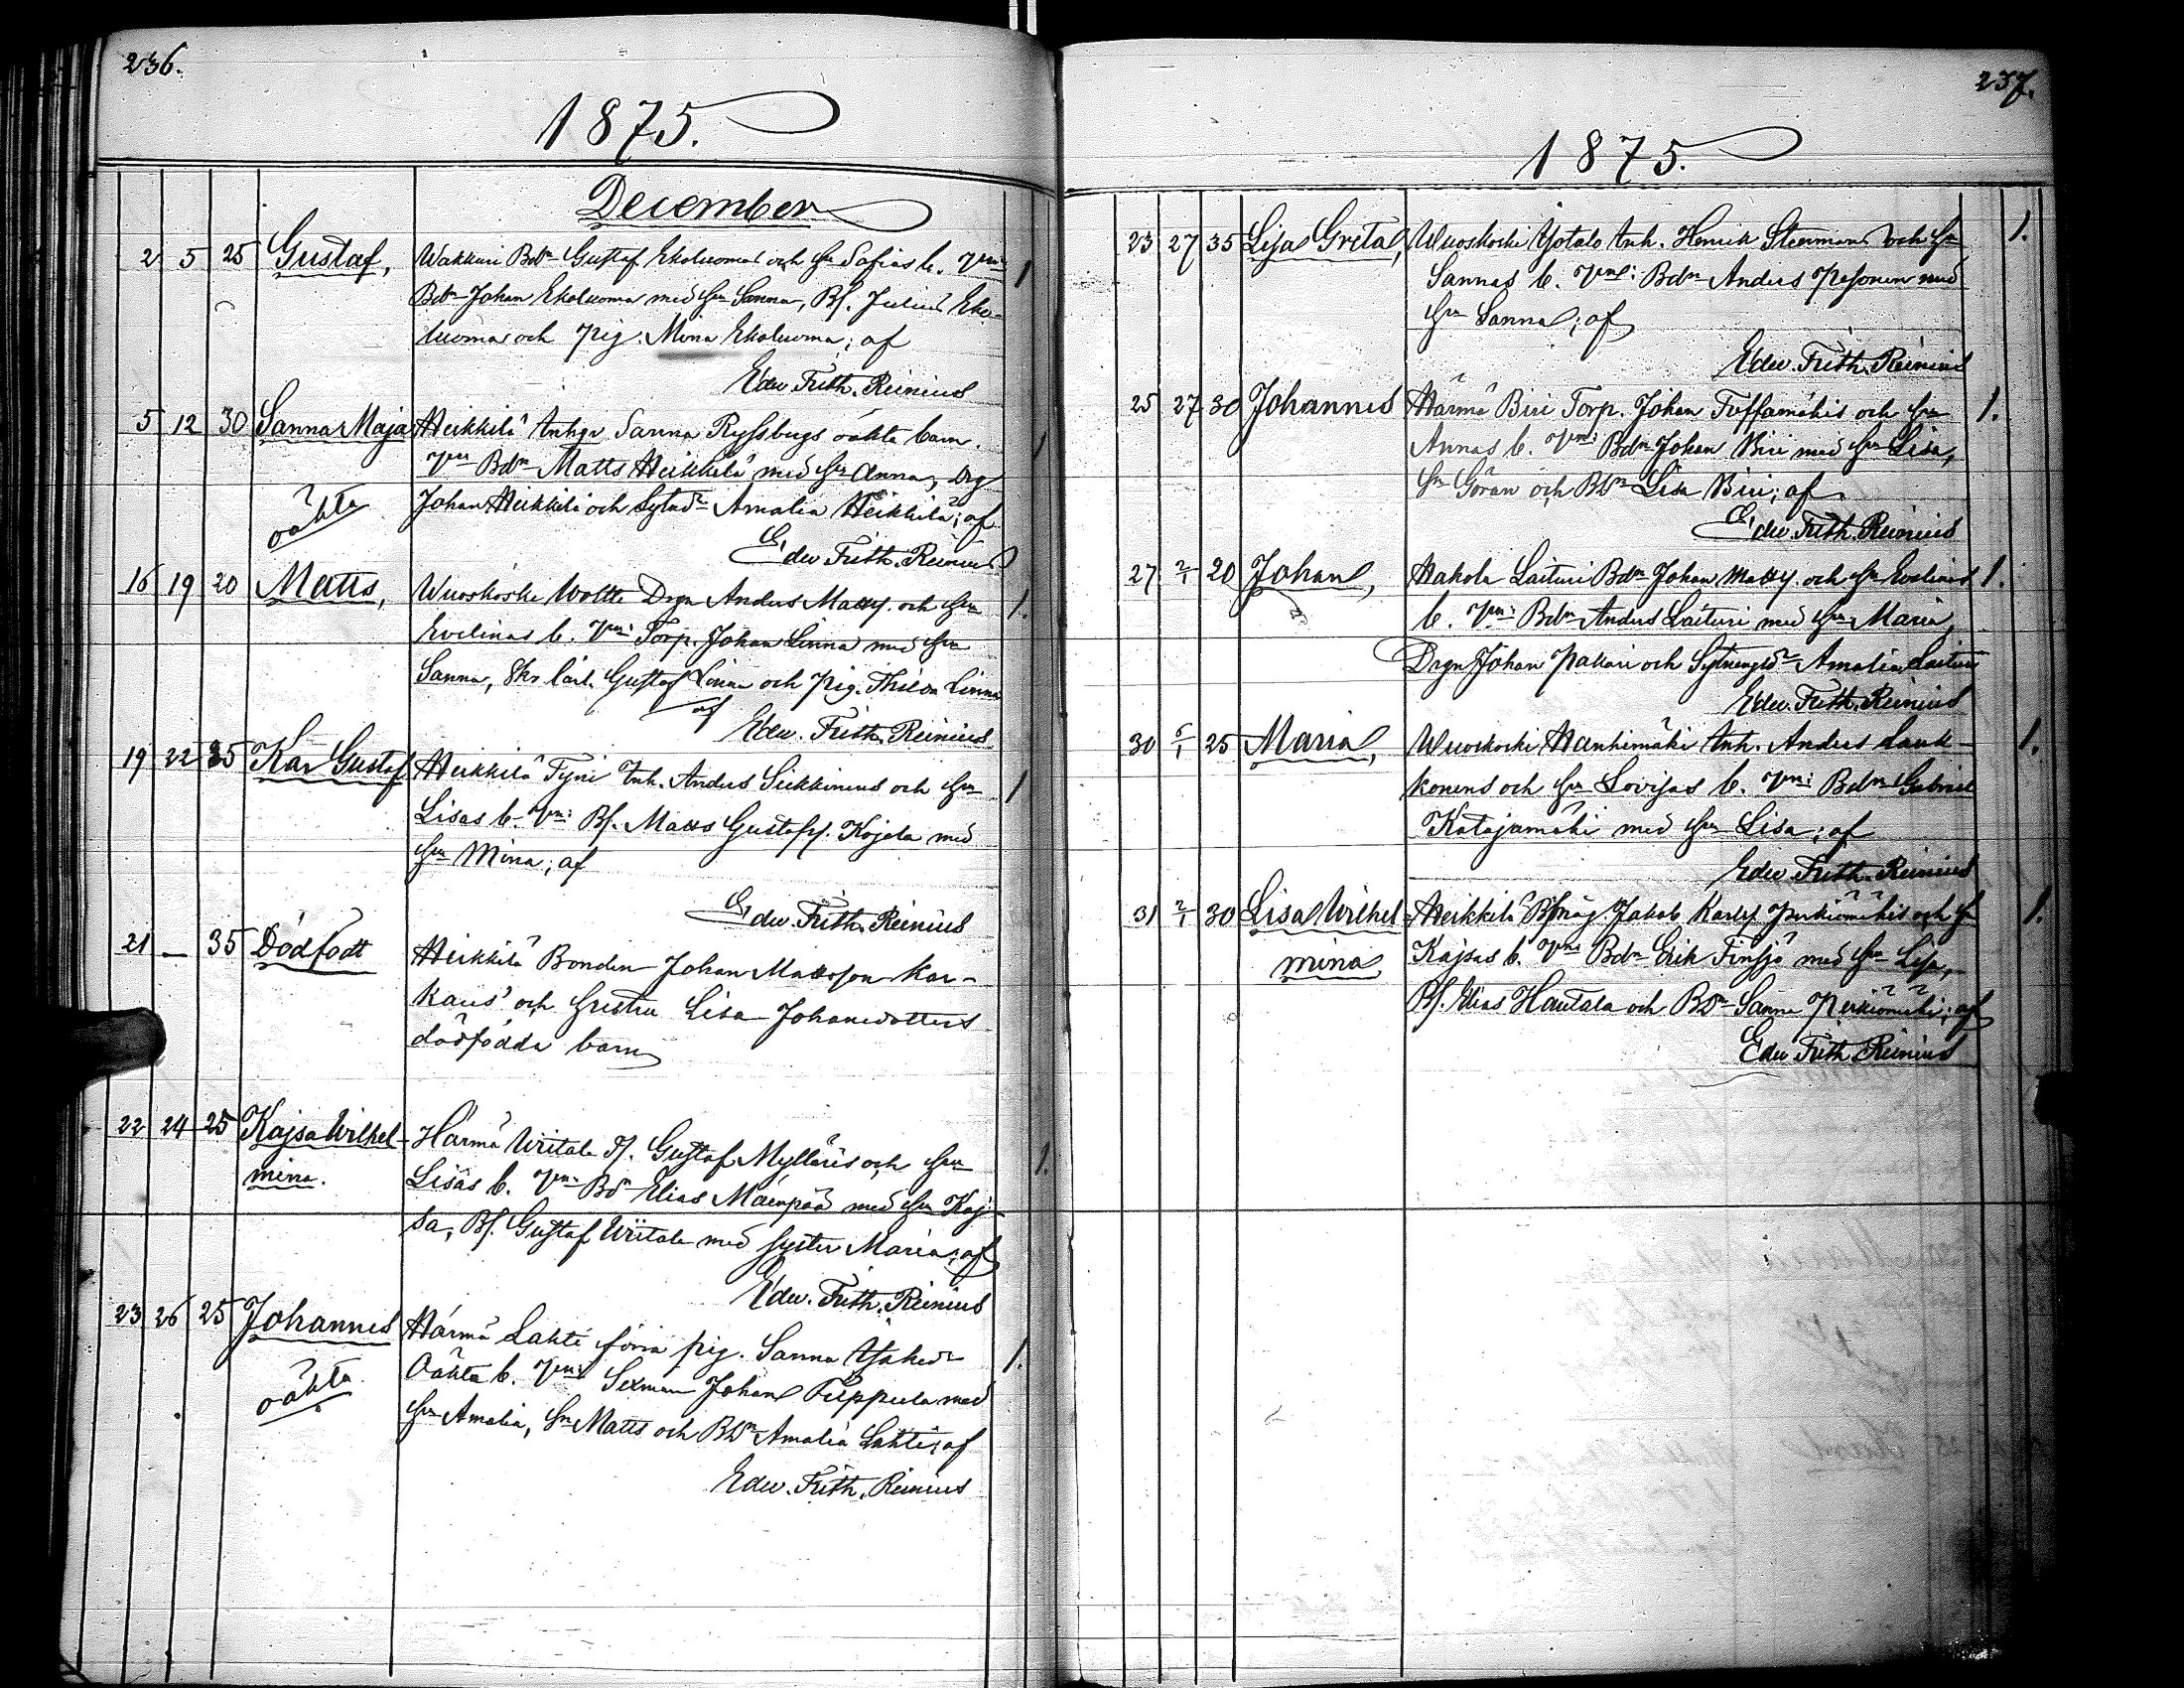 236.
1875.
December
2 5 25 Gustaf, Wakkuri Bdn Gustaf Ekoluomas och Hu Sofias b. Vm:
Bdn Johan Ekoluoma med Hu Sanna, Bs. Julius Eko-
luoma och pig. Mina Ekoluoma; af
Edw. Frith. Reinius
5 12 30 Sanna Maja Heikkilä Inhgn Sanna Ryssbugs oäkta barn.
Vm Bdn Matts Heikkilä med Hu Anna, Drg
oäkta Johan Heikkilä och Amalia Heikkilä; af
Edw. Frith. Reinius
16 19 20 Matts, Wuoskoski Woltti Drgn Anders Matts. och Hu
Evelinas b. Vm: Torp. Johan Linna med Hu
Sanna, Gustaf Linna och pig. Linna
af Edw. Frith. Reinius
19 22 35 Kar Gustaf Heikkilä Tyni Inh. Anders och Hu
Lisas b. Vm: Bs. Matts Gustafs. Kojola med
Hu Mina; af
Edw. Frith. Reinius
21 — 35 Dödfödt Heikkilä Bonden Johan Mattsson Kar-
kaus' och hustru Lisa Johansdotters
dödfödda barn
22 24 25 Kajsa Wilhel- Härmä Wiitala Gustaf Mylläris och Hu
mina. Lisas b. Vm: Bdn Elias Mäenpää med Hu Kaj-
sa, Bs. Gustaf Wiitala med syster Maria; af
Edw. Frith. Reinius
23 26 25 Johannes Härmä Lahti förra pig. Sanna
oäkta Oäkta b. Vm: Sexman Johan Filppula med
Hu Amalia, Sn Matts och Bdn Amalia Lahti; af
Edw. Frith. Reinius
237.
1875.
23 27 35 Lisa Greta, Wuoskoski Yotalo Inh. Henrik Steermans och Hu
Sannas b. Vm: Bdn Anders Pesonen med
Hu Sanna; af
Edw. Frith. Reinius
25 27 30 Johannes Härmä Biri Torp. Johan och Hu
Annas b. Vm: Bdn Johan Biri med Hu Lisa,
Sn Göran och Bdn Lisa Biri; af
Edw. Frith. Reinius
27 2/1 20 Johan, Hakola Laituri Bdn Johan Matts. och Hu Evelinas
b. Vm: Bdn Anders Laituri med Hu Maria,
Drgn Johan Pakkari och Amalia Laituri
Edw. Frith. Reinius
30 6/1 25 Maria, Wuoskoski Hanhimäki Inh. Anders Lauk-
konens och Hu Lovisas b. Vm: Bdn Gabriel
Katajamäki med Hu Lisa; af
Edw. Frith. Reinius
31 2/1 30 Lisa Wilhel- Heikkilä Bsmåg. Jakob Karls. Perkiömäkis och Hu
mina Kajsas b. Vm: Bdn Erik Finsjö med Hu Lisa,
Bs. Elias Hautala och Bdn Sanna Perkiömäki; af
Edw. Frith. Reinius